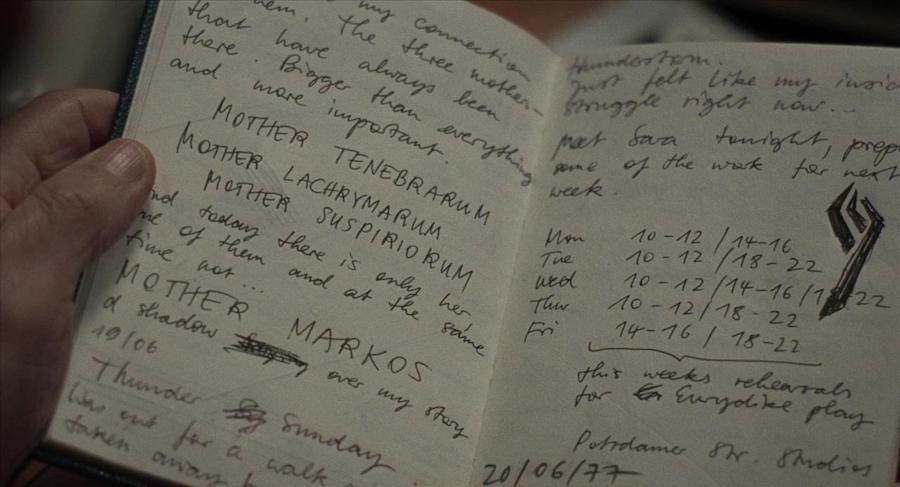 my connection
them. The three mother-
that have always been
there. Bigger than everything
and more important.
MOTHER TENEBRARUM
MOTHER LACHRYMARUM
MOTHER SUSPIRIORUM
And today there is only her
one of them and at the same
time not...
MOTHER MARKOS
a shadow over my story
19/06
Thunder Sunday
Was out for a walk
taken away
thunderstorm.
Just felt like my inside
struggle right now...
meet Sara tonight, prep
some of the work for next
week.
Mon 10-12 / 14-16
Tue 10-12 / 18-22
Wed 10-12 / 14-16 / 22
Thur 10-12 / 18-22
Fri 14-16 / 18-22
this weeks rehearsals
for Eurydike play
Potsdamer Str. Studios
20/06/77